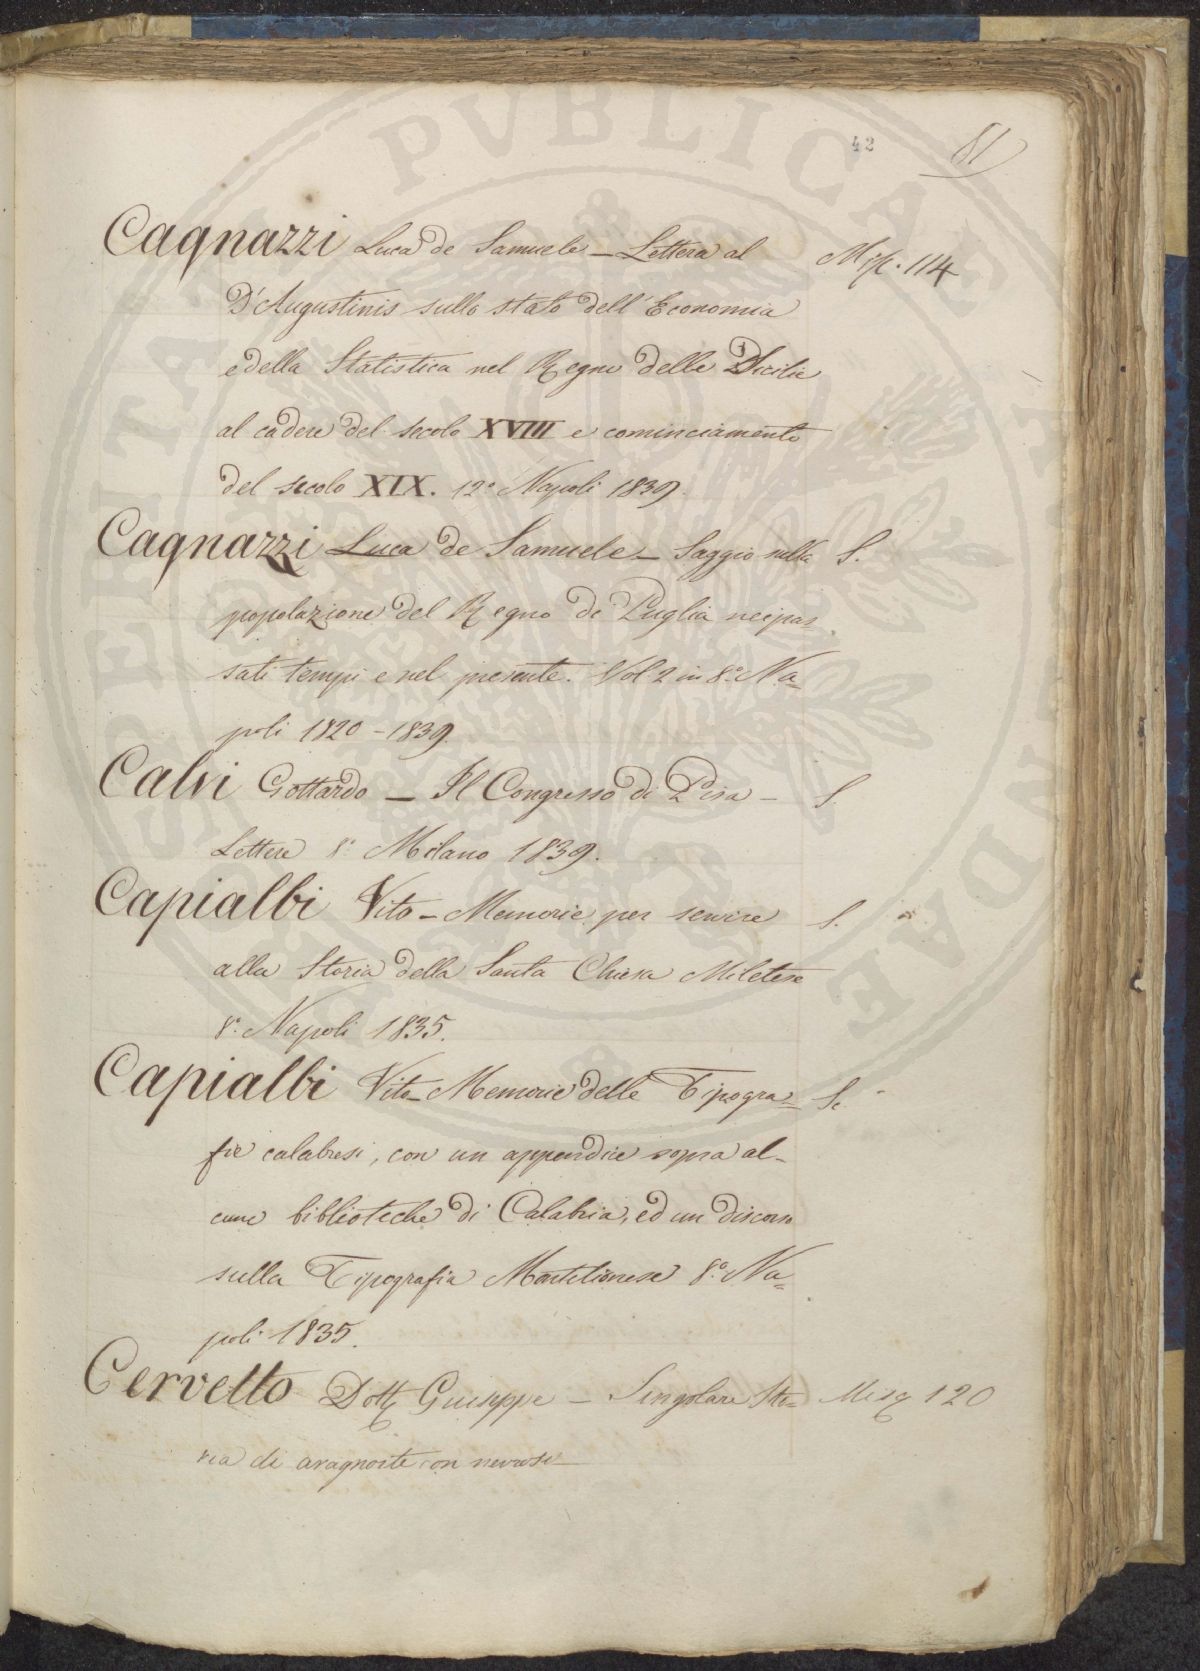 42 81
Cagnazzi Luca de Samuele – Lettera al Misc. 114
D'Augustinis sullo stato dell'Economia
e della Statistica nel Regno delle Sicilie
al cadere del secolo XVIII e cominciamento
del secolo XIX. 12º Napoli 1839.
Cagnazzi Luca de Samuele – Saggio sulla S.
popolazione del Regno di Puglia nei pas=
sati tempi e nel presente. Vol. 2 in 8º Na=
poli 1820 – 1839.
Calvi Gottardo – Il Congresso di Pisa – S.
Lettere 8º Milano 1839.
Capialbi Vito – Memorie per servire S.
alla Storia della Santa Chiesa Miletese
8º Napoli 1835.
Capialbi Vito – Memorie delle Tipogra= S.
fie calabresi, con un appendice sopra al=
cune biblioteche di Calabria, ed un discorso
sulla Tipografia Montelionese 8º Na=
poli 1835.
Cervetto Dott Giuseppe – Singolare Sto= Misc 120
ria di aragnoite con nevrosi –
PVBLICAE